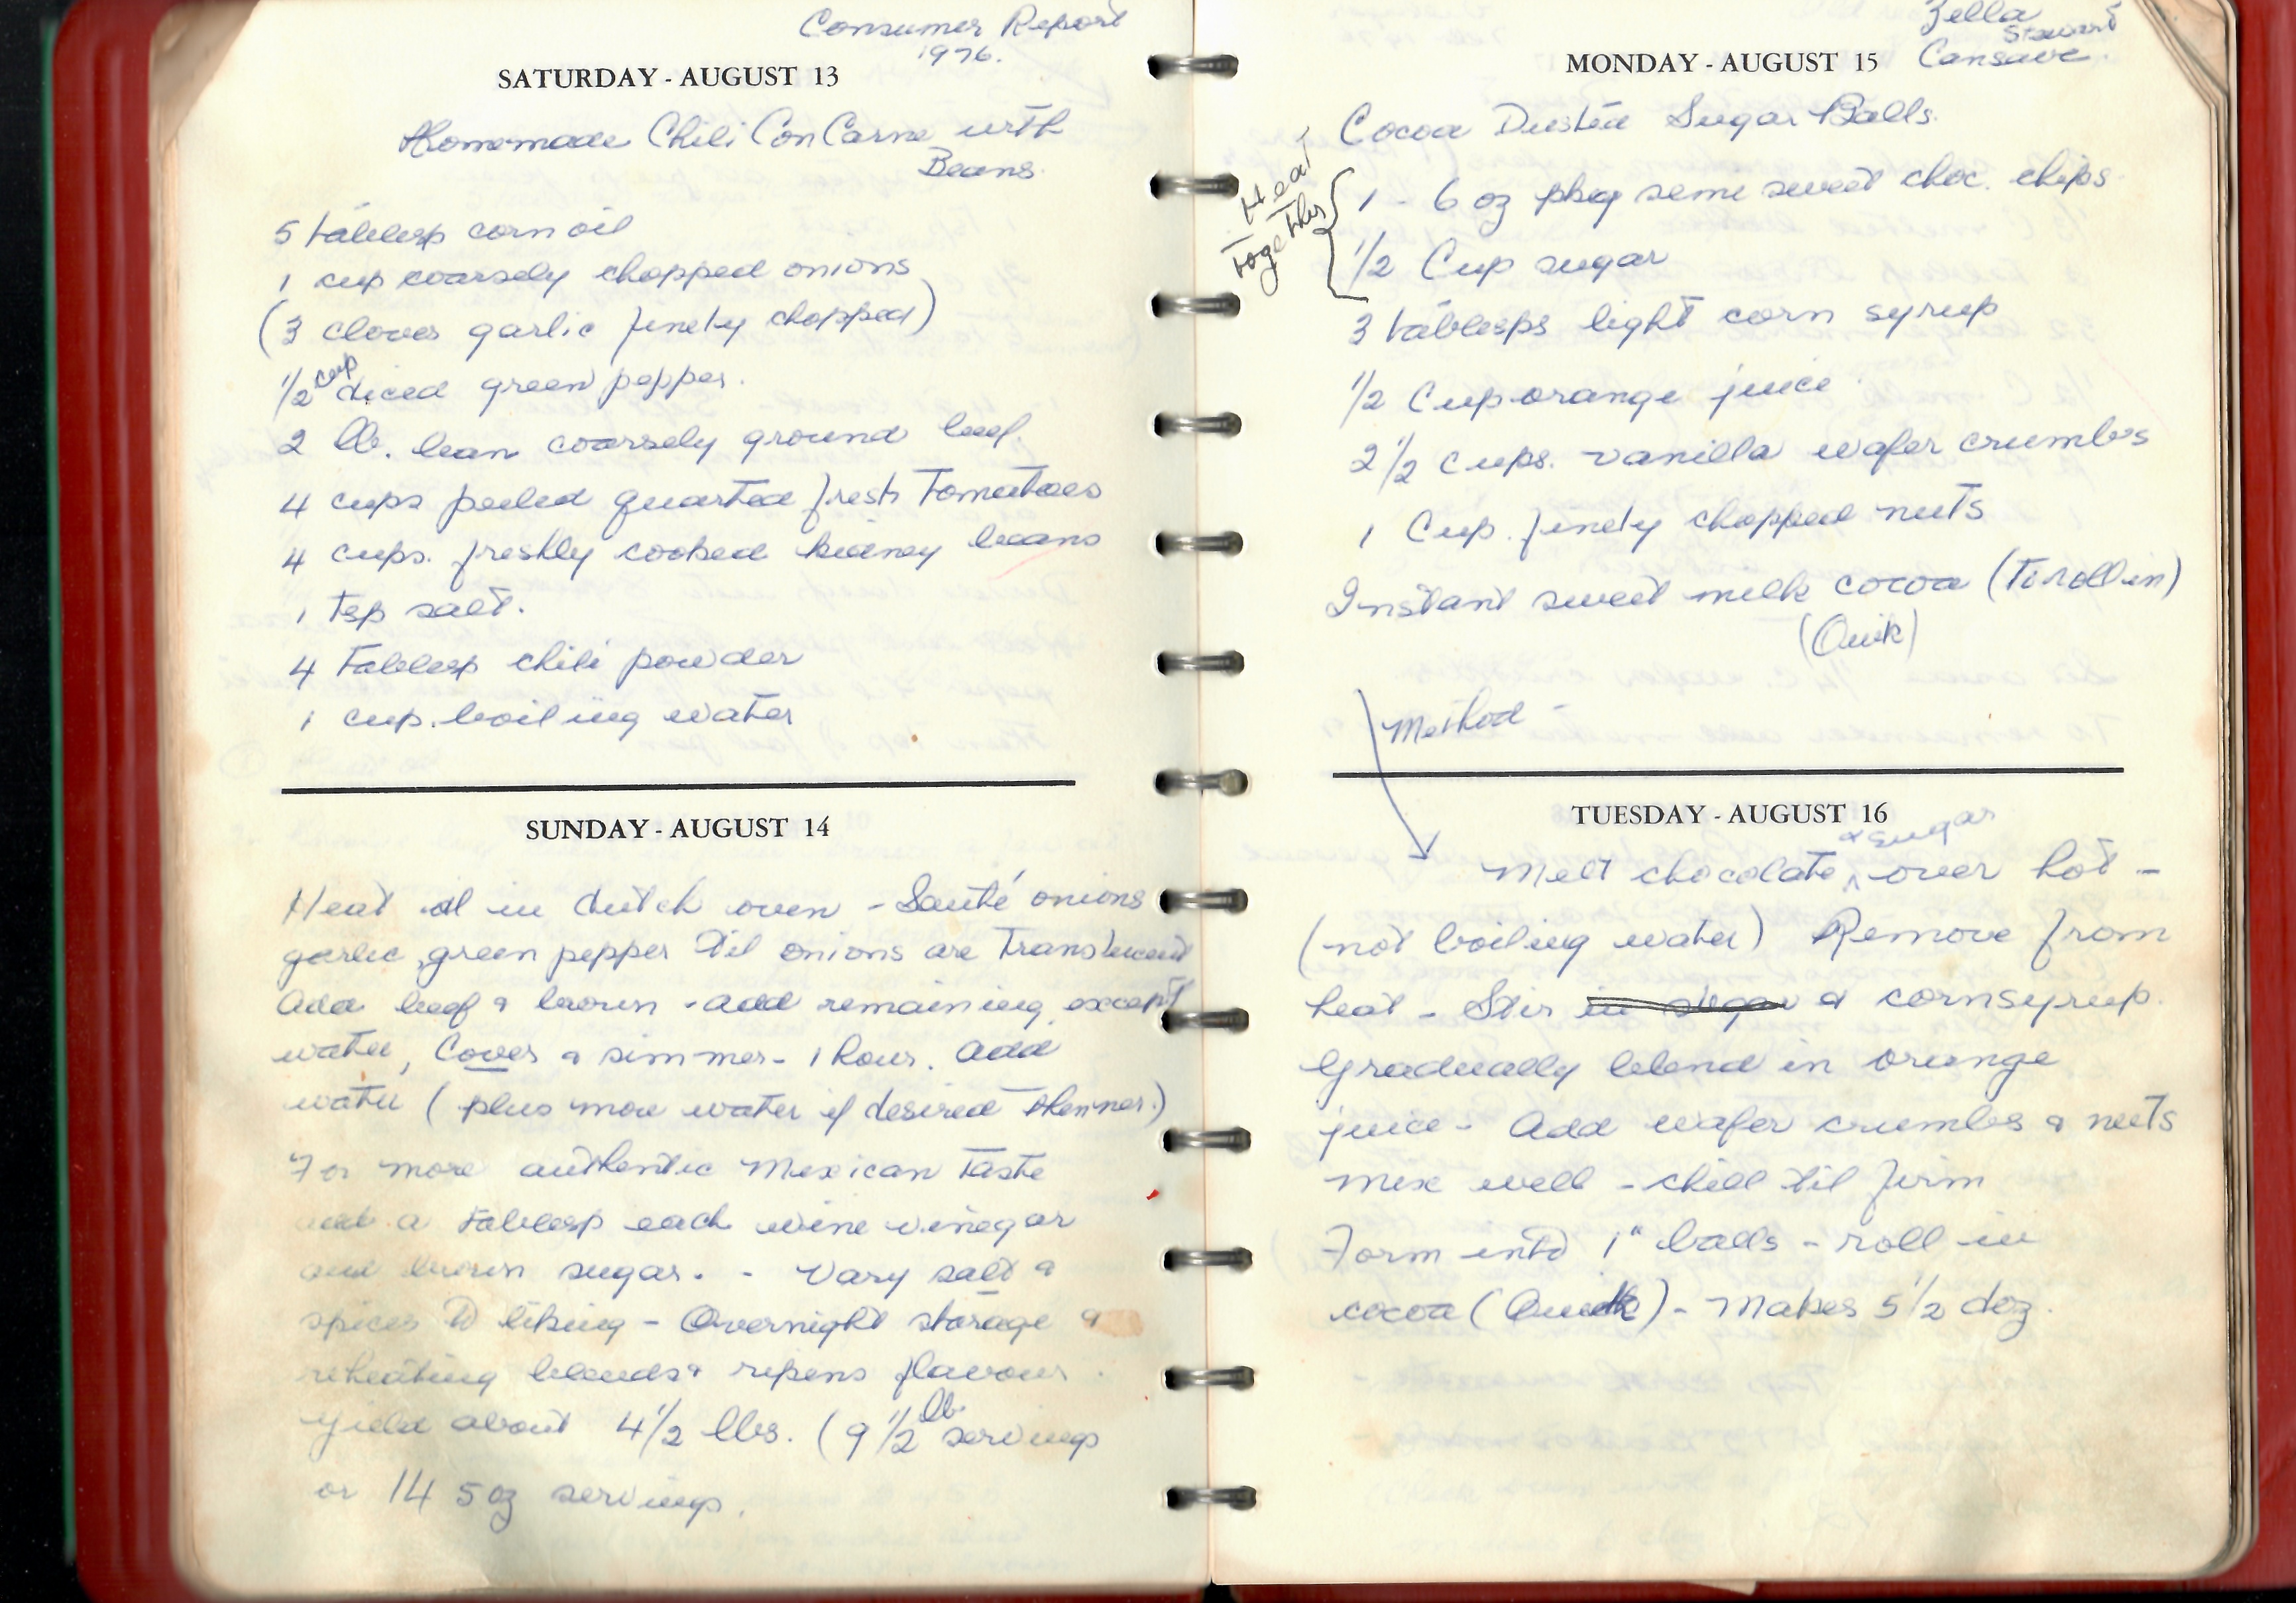 Consumer Report
1976.
SATURDAY - AUGUST 13
Homemade Chili Con Carne with
Beans.
5 tablesp corn oil
1 cup coarsely chopped onions
(3 cloves garlic finely chopped)
1/2 cup diced green pepper.
2 lb. lean coarsely ground beef.
4 cups peeled quarted fresh Tomatoes
4 cups. freshly cooked kidney beans
1 tsp salt.
4 Tablesp chili powder
1 cup. boiling water
SUNDAY - AUGUST 14
Heat oil in dutch oven - Sauté onions
garlic, green pepper til onions are translucent
Add beef & brown - add remaining except
water, Cover & simmer - 1 hour. Add
water (plus more water if desired thinner.)
For more authentic Mexican taste
add a tablesp each wine vinegar
and brown sugar. - Vary salt &
spices to liking - Overnight storage &
reheating blends & ripens flavour.
Yield about 4 1/2 lbs. (9 1/2 lb. servings
or 14 5 oz servings.
Zella
Stewart
Cansave.
MONDAY - AUGUST 15
Cocoa Dusted Sugar Balls.
Heat
together
this
1 - 6 oz pkg semi sweet choc. chips
1/2 Cup sugar
3 tablesps light corn syrup
1/2 Cup orange juice
2 1/2 Cups. vanilla wafer crumbs
1 Cup. finely chopped nuts
Instant sweet milk cocoa (To roll in)
(Quik)
Method -
TUESDAY - AUGUST 16
Melt chocolate & sugar over hot -
(not boiling water) Remove from
heat - Stir in sugar & cornsyrup.
Gradually blend in orange
juice - Add wafer crumbs & nuts
mix well - chill til firm
Form into 1" balls - roll in
cocoa (Quik) - Makes 5 1/2 doz.